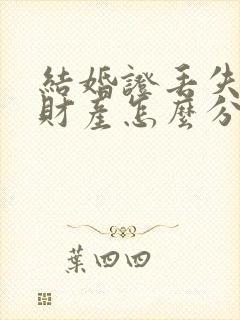 結婚證丟失
財產怎麼分
葉四四